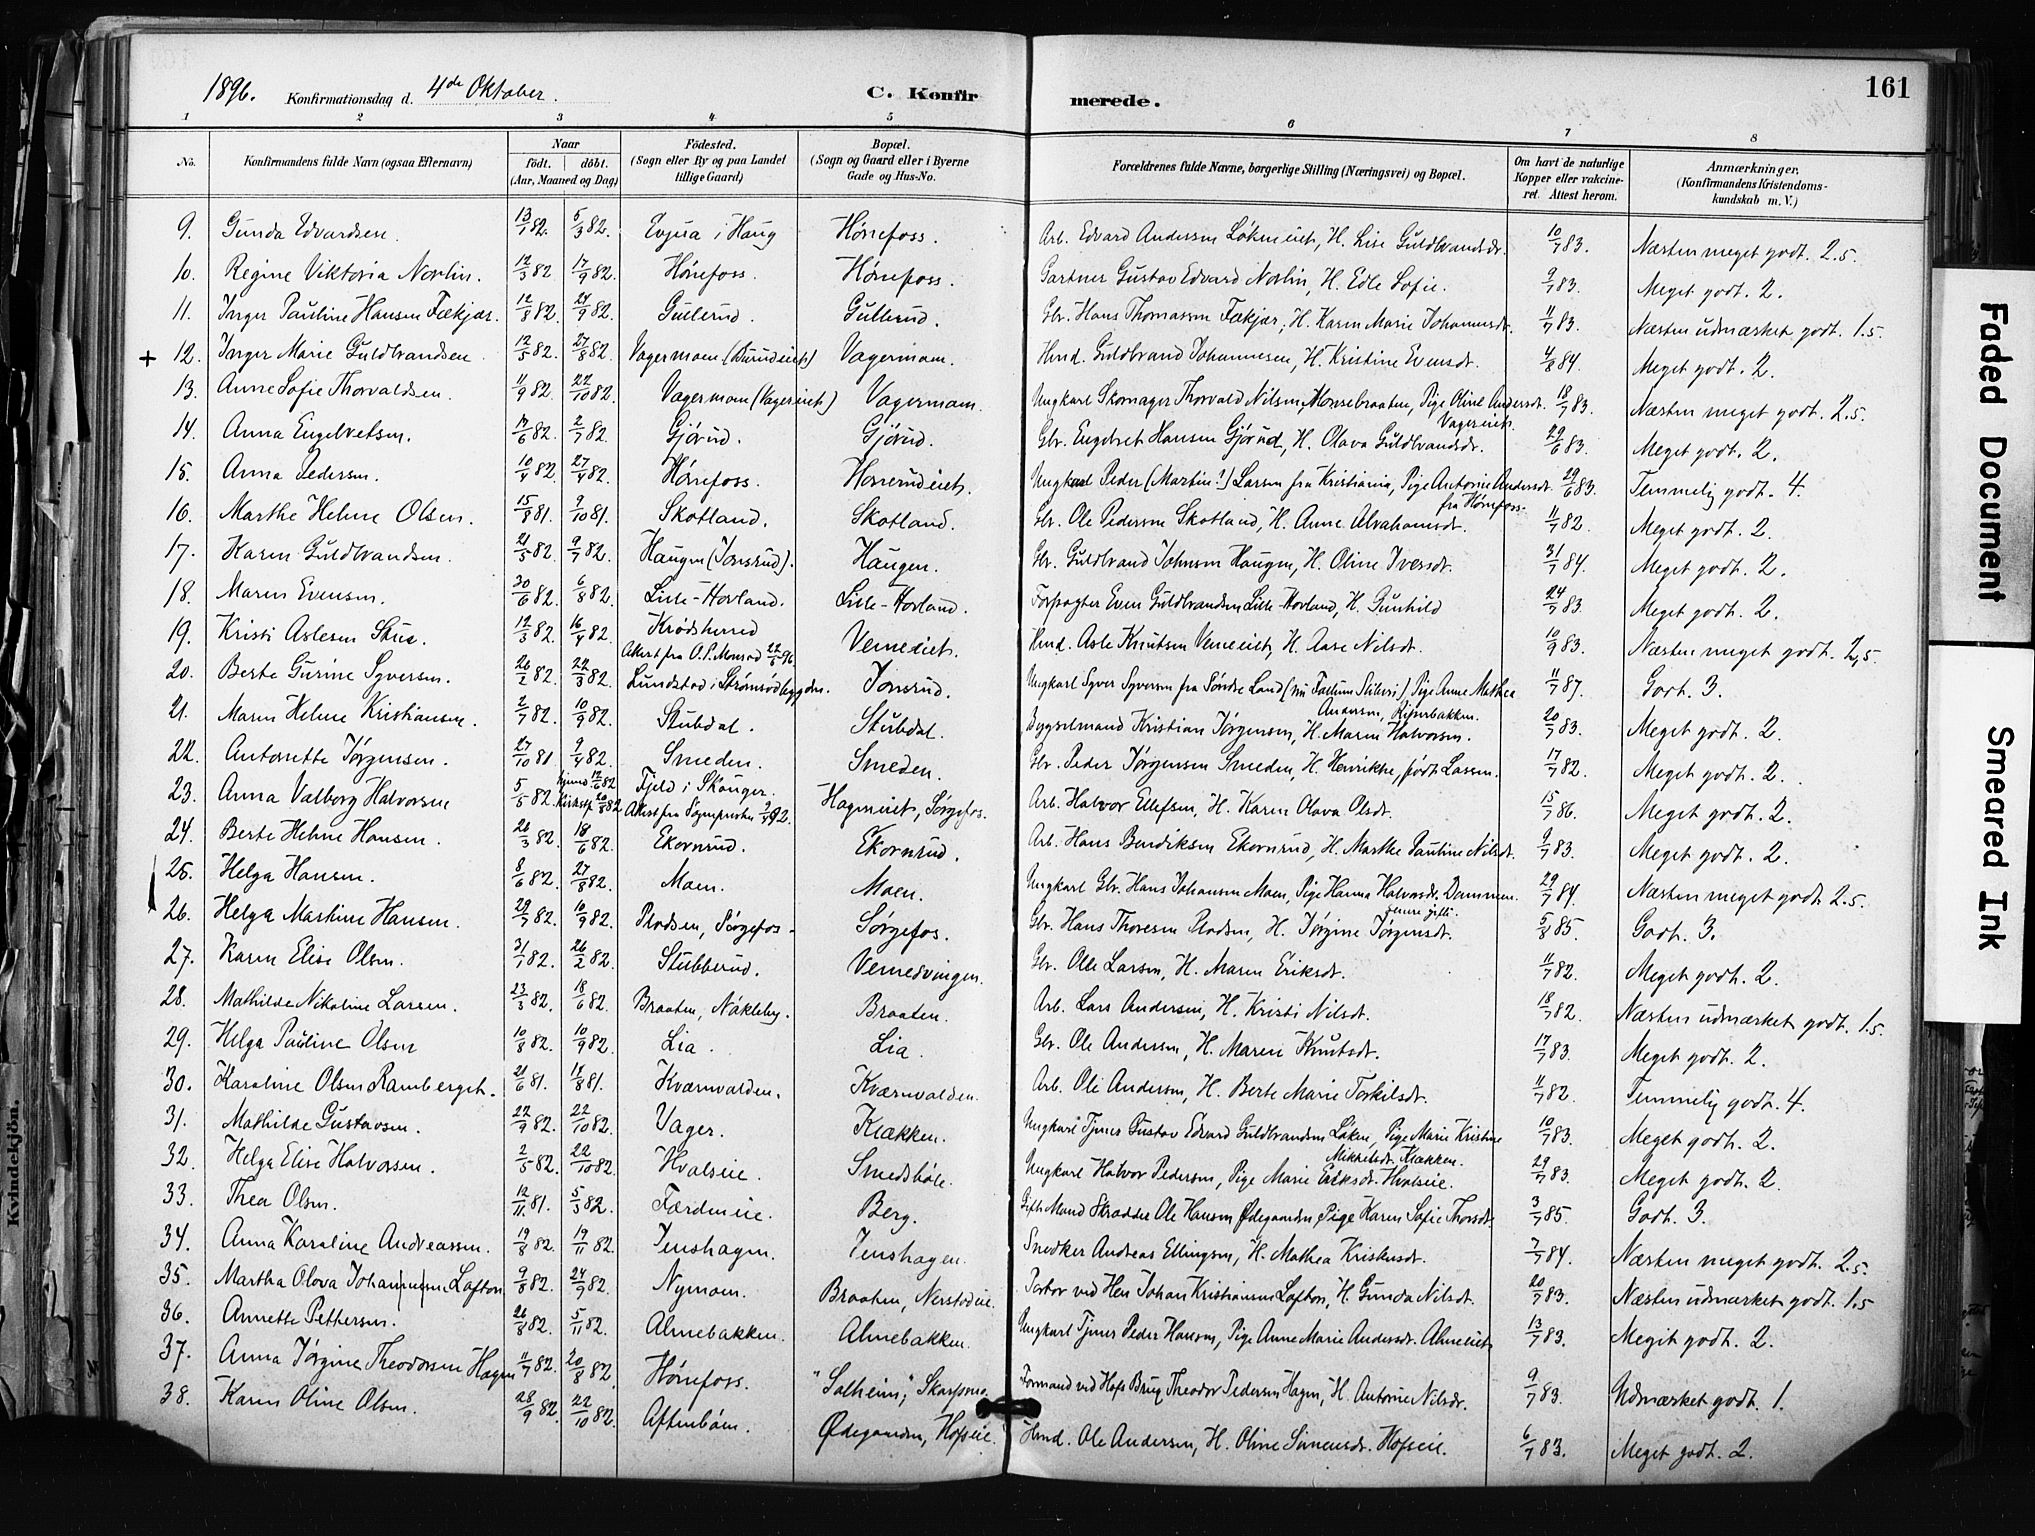 1896. Konfirmationsdag d. 4de Oktober. C. Konfir merede. 161
1 2 3 4 5 6 7 8
No. Konfirmandens fulde Navn (ogsaa Efternavn) Naar født. døbt. (Aar, Maaned og Dag) Fødested. (Sogn eller By og paa Landet tillige Gaard) Bopæl. (Sogn og Gaard eller i Byerne Gade og Hus-No. Forældrenes fulde Navne, borgerlige Stilling (Næringsvei) og Bopæl. Om havt de naturlige Kopper eller vakcineret. Attest herom. Anmærkninger. (Konfirmandens Kristendomskundskab m. V.)
9. Gunda Edvardsen. 13/1 82. 5/3 82. i Haug Hønefoss. Arb. Edvard Andersen Løkeneiet, H. Lise Guldbrandsdr. 10/7 83. Næsten meget godt. 2.5.
10. Regine Viktoria Norlin. 12/3 82 17/9 82. Hønefoss. Hønefoss. Gartner Gustav Edvard Norlin, H. Edle Sofie. 9/7 83. Meget godt. 2.
11. Inger Pauline Hansen Fækjær. 12/8 82. 24/9 82. Gullerud. Gullerud. Gbr. Hans Thomassen Fækjær, H. Karen Marie Johannesdr. 11/7 83. Næsten udmærket godt. 1.5.
+ 12. Inger Marie Guldbrandsen 12/5 82. 27/8 82. Vagermoen Vagermoen. Hmd. Guldbrand Johannesen, H. Kristine Evensdr. 4/8 84. Meget godt. 2.
13. Anne Sofie Thorvaldsen. 11/9 82. 22/10 82. Vagermoen (Vagereiet) Vagermoen. Ungkarl Skomager Thorvald Nilsen, Monsebraaten, Pige Oline Andersdr. Vagereiet. 18/7 83. Næsten meget godt. 2.5.
14. Anna Engebretsen. 17/6 82. 2/7 82. Gjørud. Gjørud. Gbr. Engebret Hansen Gjørud, H. Olava Guldbrandsdr. 29/6 83. Meget godt. 2.
15. Anna Pedersen. 10/4 82. 27/4 82. Hønefoss. Honerudeiet. Ungkarl Peder (Martin?) Larsen fra Kristiania, Pige Antonie Andersdr. fra Hønefoss. 29/6 83. Temmelig godt. 4.
16. Marthe Helene Olsen. 15/8 81. 9/10 81. Skotland. Skotland. Gbr. Ole Pedersen Skotland, H. Anne Abrahamsdr. 11/7 82. Meget godt. 2.
17. Karen Guldbrandsen. 21/5 82. 9/7 82. Haugen (Jonsrud). Haugen. Gbr. Guldbrand Johnsen Haugen, H. Oline Iversdr. 31/7 84. Meget godt. 2.
18. Maren Evensen. 30/6 82. 6/8 82. Lille-Hovland. Lille-Hovland. Forpagter Even Guldbrandsen Lille-Hovland, H. Gunhild 24/7 83. Meget godt. 2.
19. Kristi Aslesen 12/3 82. 16/4 82. Krødsherred Attest fra O. P. Monrad 22/5 96. Vemeeiet. Hmd. Asle Knutsen Vemeeiet, H. Aase Nilsdr. 10/9 83. Næsten meget godt. 2,5.
20. Berte Gurine Syversen. 26/2 82. 22/3 82. Lundstad i Strømsødbygden. Jonsrud. Ungkarl Syver Syversen fra Søndre Land Pige Anne Mathea Andersen, 11/7 87. Godt. 3.
21. Maren Helene Kristiansen. 2/7 82. 10/9 82. Stubdal. Stubdal. Bygselmand Kristian Jørgensen, H. Maren Halvorsen. 20/7 83. Meget godt. 2.
22. Antonette Jørgensen. 27/10 81 9/4 82. Smeden. Smeden. Gbr. Peder Jørgensen Smeden, H. Henrikke, født Larsen. 17/7 82. Meget godt. 2.
23. Anna Valborg Halvorsen 5/5 82. Hjemd 12/6 82 Kirkestf. 20/8 82 Fjeld i Skonger. Attest fra Sogneprestn 92. Hageneiet, Sørgefos. Arb. Halvor Ellefsen, H. Karen Olava Olsdr. 15/7 86. Meget godt. 2.
24. Berte Helene Hansen. 26/3 82. 18/6 82. Ekornrud. Ekornrud. Arb. Hans Bendiksen Ekornrud, H. Marthe Pauline Nilsdr. 9/7 83. Meget godt. 2.
25. Helga Hansen. 8/6 82. 27/8 82. Moen. Moen. Ungkarl Gbr. Hans Johansen Moen, Pige Hanna Halvorsdr. Dammen. senere gifte. 29/7 84. Næsten meget godt. 2.5.
26. Helga Martine Hansen. 29/7 82. 10/9 82. Pladsen, Sørgefos. Sørgefos. Gbr. Hans Thoresen Pladsen, H. Jørgine Jørgensdr. 5/8 85. Godt. 3.
27. Karen Elise Olsen. 31/1 82. 26/2 82. Stubberud. Vemesvingen. Gbr. Ole Larsen, H. Maren Eriksdr. 11/7 82. Meget godt. 2.
28. Mathilde Nikoline Larsen. 23/3 82. 18/6 82. Braaten, Nakleby. Braaten. Arb. Lars Andersen, H. Kristi Nilsdr. 18/7 82. Næsten udmærket godt. 1.5.
29. Helga Pauline Olsen 10/8 82. 10/9 82. Lia. Lia. Gbr. Ole Andersen, H. Maren Knutsdr. 17/7 83. Meget godt. 2.
30. Karoline Olsen Ramberget. 21/6 81. 14/8 81. Kværnvolden. Kværnvolden. Arb. Ole Andersen, H. Berte Marie Torkilsdr. 11/7 82. Temmelig godt. 4.
31. Mathilde Gustavsen. 22/9 82. 22/10 82. Vager. Klækken. Ungkarl Tjener Gustav Edvard Guldbrandsen Løken, Pige Marie Kristine Mikkelsdr. Klækken. 10/7 83. Meget godt. 2.
32. Helga Elise Halvorsen. 2/5 82. 22/10 82. Hvalseie. Smedsbøle. Ungkarl Halvor Pedersen, Pige Marie Eriksdr. Hvalseie. 29/7 83. Meget godt. 2.
33. Thea Olsen. 12/11 81. 5/3 82. Færdeneie. Berg. Gift Mand Skrædder Ole Hansen Ødegaarden, Pige Karen Sofie Thorsdr. 3/7 85. Godt. 3.
34. Anna Karoline Andreassen. 19/8 82. 19/11 82. Jenshagen. Jenshagen. Snedker Andreas Ellingsen, H. Mathea Kristensdr. 7/7 84. Næsten meget godt. 2.5.
35. Martha Olava Johannesen Lofton 9/8 82. 24/9 82. Nymoen. Braaten, Nerstadeie. Portør ved Hen Johan Kristiansen Lofton, H. Gunda Nilsdr. 20/7 83. Næsten udmærket godt. 1.5
36. Annette Pettersen. 26/8 82. 5/11 82. Almebakken. Almebakken. Ungkarl Tjener Peder Hansen, Pige Anne Marie Andersdr. Almeeiet 13/7 83. Meget godt. 2.
37. Anna Jørgine Theodorsen Hagen 11/7 82. 20/8 82. Hønefoss. "Solheim", Skarpsno. Formand ved Hofs Brug Theodor Pedersen Hagen, H. Antonie Nilsdr. 9/7 83. Udmærket godt. 1.
38. Karen Oline Olsen. 28/9 82. 22/10 82. Aftenbøen. Ødegaarden, Hofseie. Hmd. Ole Andersen, H. Oline Simensdr. Hofseie. 6/7 83. Meget godt. 2.
Kvindekjön.
Faded Document
Smeared Ink